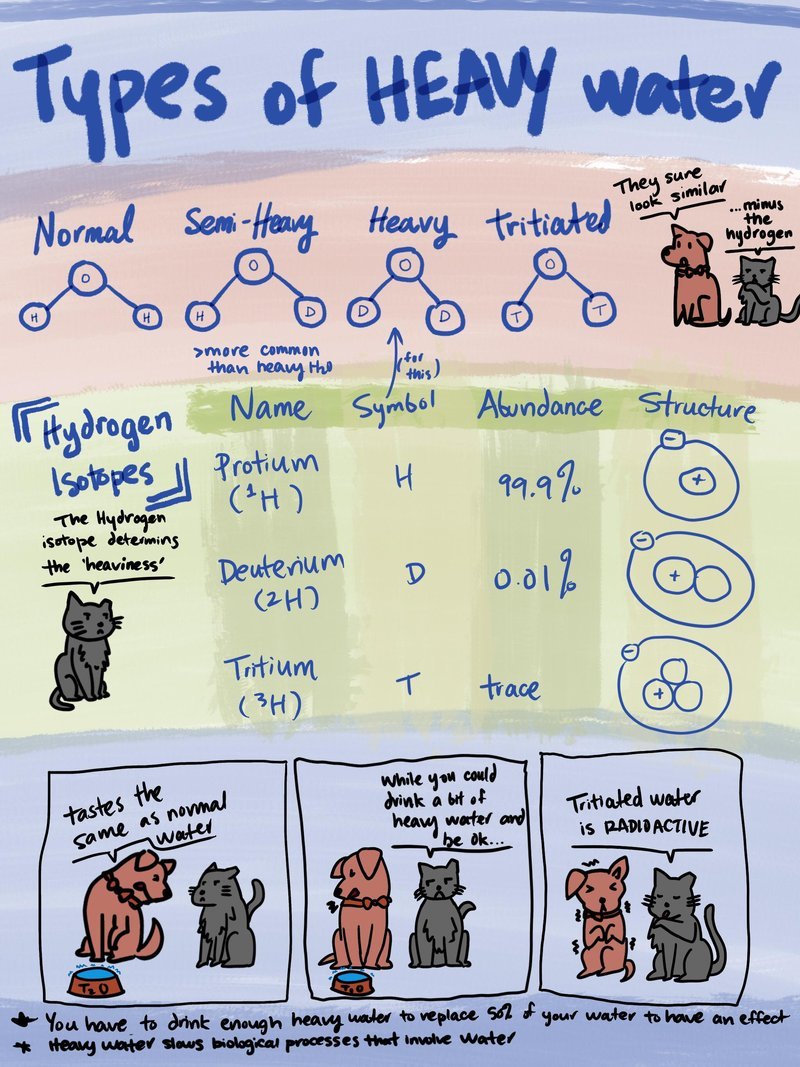 Types of HEAVY water
They sure
look similar
...minus
the
hydrogen
Normal
O
H H
Semi-Heavy
O
H D
>more common
than heavy H2O
Heavy
O
D D
(for
this)
Tritiated
O
T T
Hydrogen
Isotopes
The Hydrogen
isotope determins
the 'heaviness'
Name Symbol Abundance Structure
Protium
(¹H)
H
99.9%
-
+
Deuterium
(2H)
D
0.01%
-
+
Tritium
(³H)
T
trace
-
+
tastes the
same as normal
water
T2O
While you could
drink a bit of
heavy water and
be ok...
T2O
Tritiated water
is RADIOACTIVE
* You have to drink enough heavy water to replace 50% of your water to have an effect
* Heavy water slows biological processes that involve water